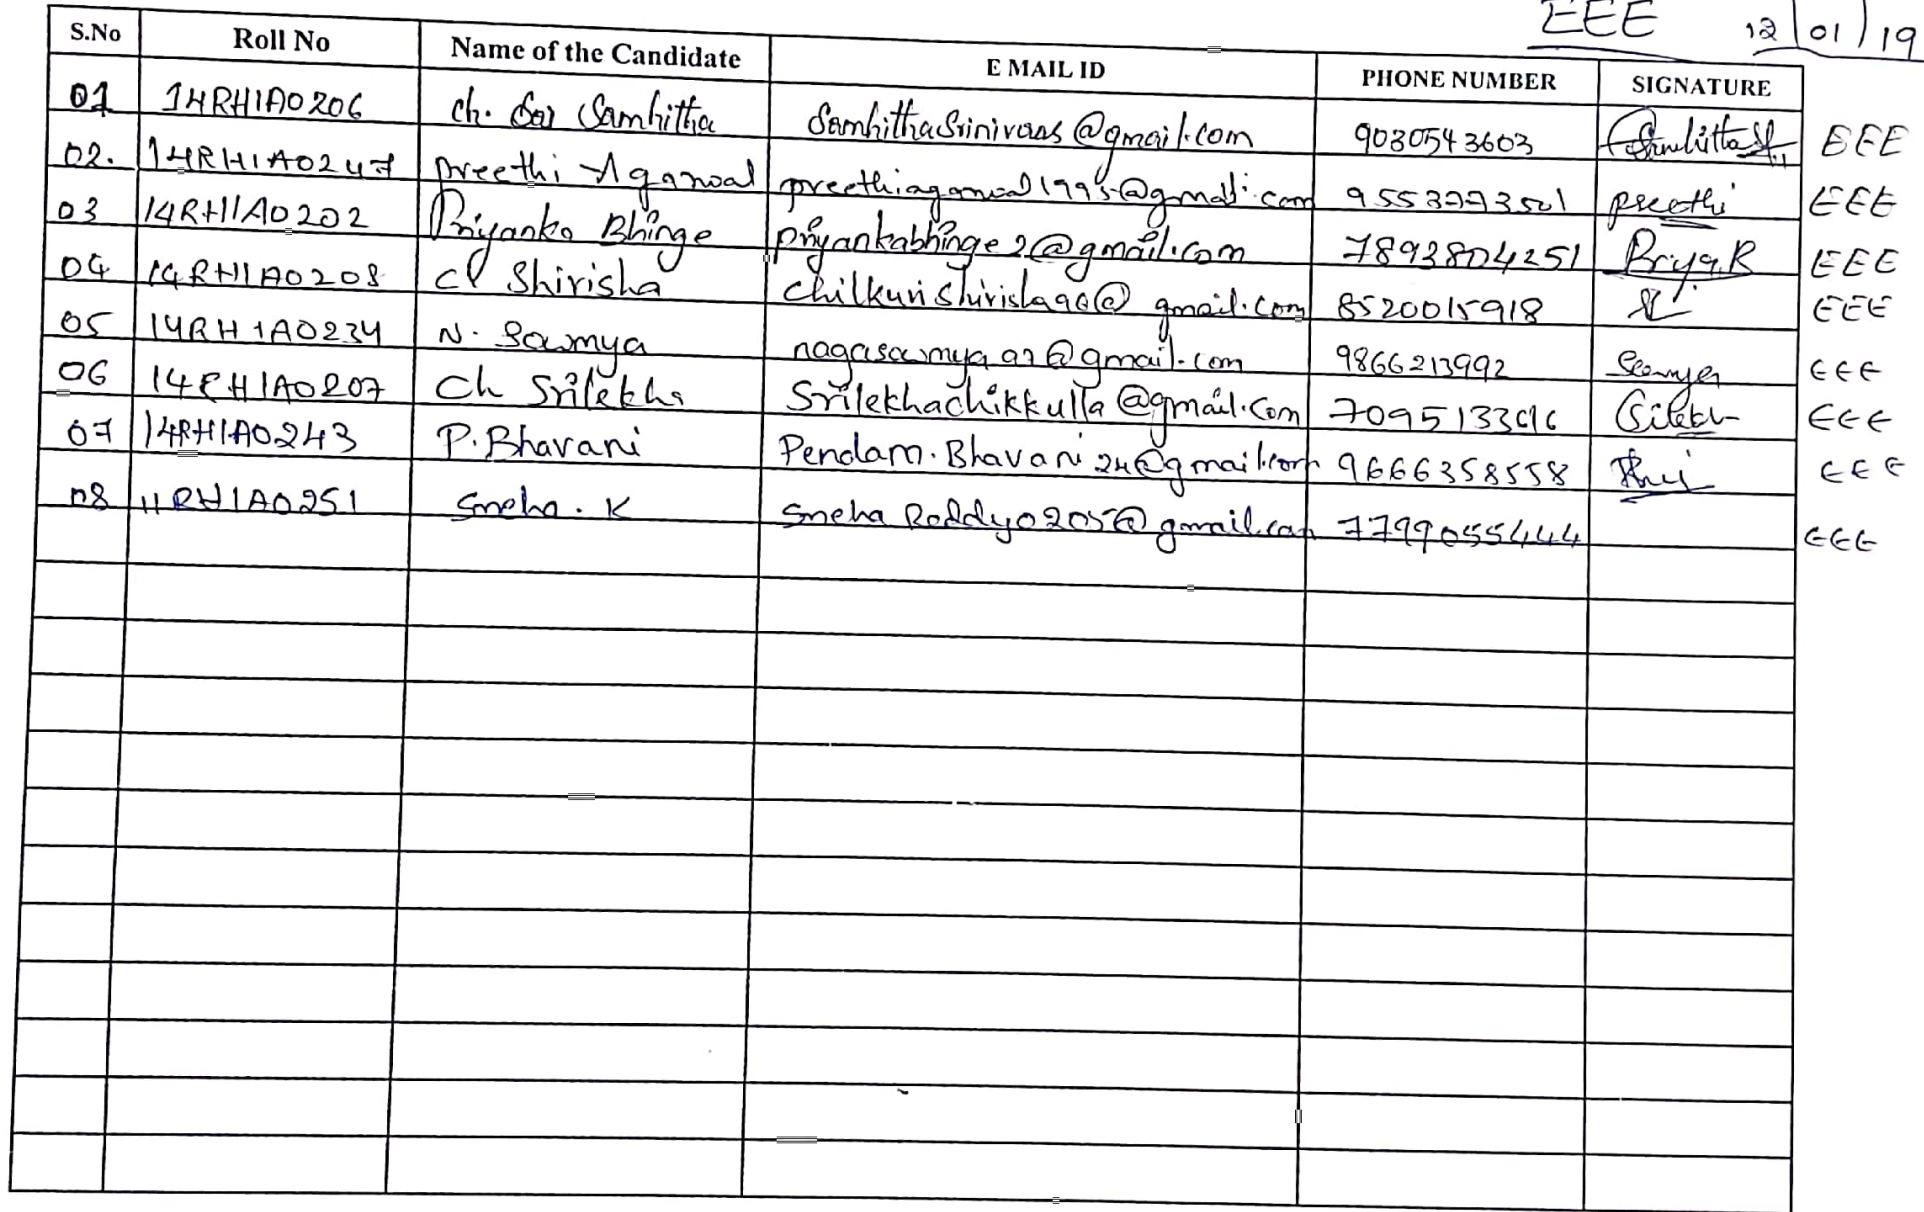 EEE 12/01/19
S.No Roll No Name of the Candidate E MAIL ID PHONE NUMBER SIGNATURE
01 14RH1A0206 Ch. Sai Samhitha SamhithaSrinivaas@gmail.com 9030543603 EEE
02. 14RH1A0247 Preethi Agarwal preethiagarwal1995@gmail.com 9553773501 preethi EEE
03 14RH1A0202 Priyanka Bhinge priyankabhinge2@gmail.com 7893804251 Priya.B EEE
04 14RH1A0208 Ch Shirisha chilkurishirisha96@gmail.com 8520015918 EEE
05 14RH1A0234 N. Sowmya nagasowmya97@gmail.com 9866213992 Sowmya EEE
06 14RH1A0207 Ch Srilekha Srilekhachikkulla@gmail.com EEE
07 14RH1A0243 P. Bhavani Pendam.Bhavani24@gmail.com 9666358558 EEE
08 14RH1A0251 Sneha. K SnehaReddy0205@gmail.com 7799055444 EEE